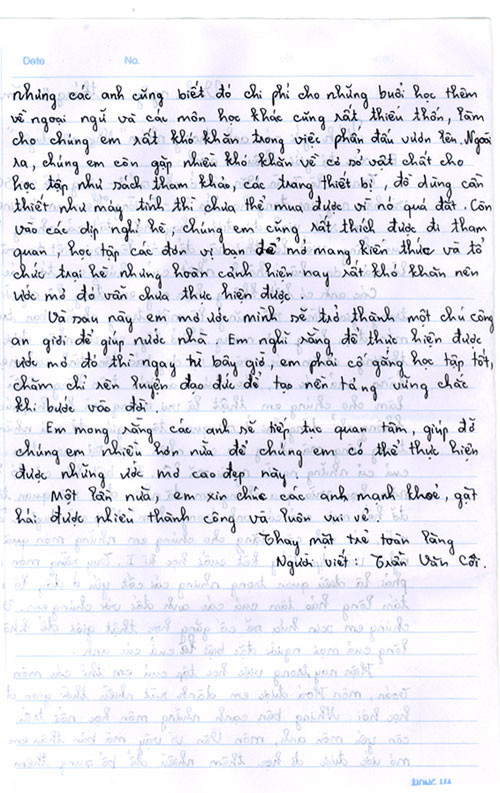 Date No.
những các anh cũng biết đó chi phí cho những buổi học thêm
về ngoại ngữ và các môn học khác cũng rất thiếu thốn, làm
cho chúng em rất khó khăn trong việc phấn đấu vươn lên. Ngoài
ra, chúng em còn gặp nhiều khó khăn về cơ sở vật chất cho
học tập như sách tham khảo, các trang thiết bị, đồ dùng cần
thiết như máy tính thì chưa thể mua được vì nó quá đắt. Còn
vào các dịp nghỉ hè, chúng em cũng rất thích được đi tham
quan, học tập các đơn vị bạn để mở mang kiến thức và tổ
chức trại hè nhưng hoàn cảnh hiện nay rất khó khăn nên
ước mơ đó vẫn chưa thực hiện được.
Và sau này em mơ ước mình sẽ trở thành một chú công
an giỏi để giúp nước nhà. Em nghĩ rằng để thực hiện được
ước mơ đó thì ngay từ bây giờ, em phải cố gắng học tập tốt,
chăm chỉ rèn luyện đạo đức để tạo nên tảng vững chắc
khi bước vào đời.
Em mong rằng các anh sẽ tiếp tục quan tâm, giúp đỡ
chúng em nhiều hơn nữa để chúng em có thể thực hiện
được những ước mơ cao đẹp này.
Một lần nữa, em xin chúc các anh mạnh khoẻ, gặt
hái được nhiều thành công và luôn vui vẻ.
Thay mặt trẻ toàn làng
Người viết: Trần Văn Cời.